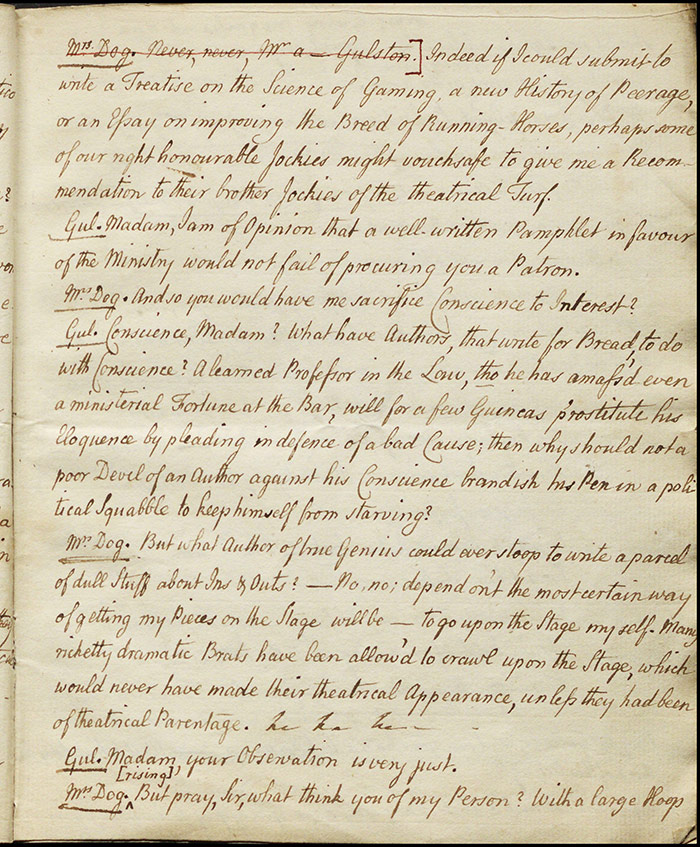 Mrs. Dog. Never, never, Mr a — Gulston.] Indeed if I could submit to
write a Treatise on the Science of Gaming, a new History of Peerage,
or an Essay on improving the Breed of Running-Horses, perhaps some
of our right honourable Jockies might vouchsafe to give me a Recom-
mendation to their brother Jockies of the theatrical Turf.
Gul. Madam, I am of Opinion that a well-written Pamphlet in favour
of the Ministry would not fail of procuring you a Patron.
Mrs. Dog. And so you would have me sacrifice Conscience to Interest?
Gul. Conscience, Madam? What have Authors, that write for Bread, to do
with Conscience? A learned Professor in the Law, tho he has amass'd even
a ministerial Fortune at the Bar, will for a few Guineas prostitute his
Eloquence by pleading in defence of a bad Cause; then why should not a
poor Devil of an Author against his Conscience brandish his Pen in a poli
tical Squabble to keep himself from starving?
Mrs. Dog. But what Author of true Genius could ever stoop to write a parcel
of dull Stuff about Ins & Outs? — No, no; depend on't the most certain way
of getting my Pieces on the Stage will be — to go upon the Stage my self. Many
ricketty dramatic Brats have been allow'd to crawl upon the Stage, which
would never have made their theatrical Appearance, unless they had been
of theatrical Parentage.
Gul. Madam, your Observation is very just.
[rising]
Mrs. Dog. ^ But pray, Sir, what think you of my Person? With a large Hoop